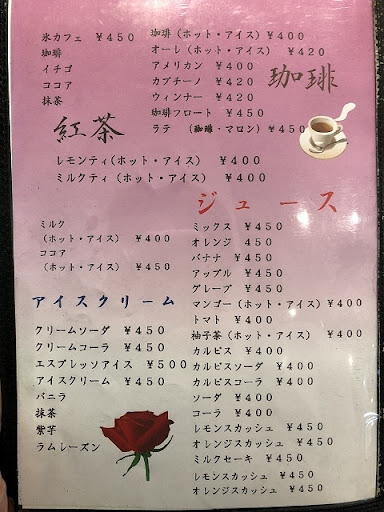 氷カフェ ￥４５０
珈琲
イチゴ
ココア
抹茶
珈琲（ホット・アイス）￥４００
オーレ（ホット・アイス） ￥４２０
アメリカン ￥４００
カプチーノ ￥４２０
ウィンナー ￥４２０
珈琲フロート ￥４５０
ラテ （珈琲・マロン）￥４５０
珈琲
紅茶
レモンティ（ホット・アイス） ￥４００
ミルクティ（ホット・アイス） ￥４００
ミルク
（ホット・アイス） ￥４００
ココア
（ホット・アイス） ￥４５０
アイスクリーム
クリームソーダ ￥４５０
クリームコーラ ￥４５０
エスプレッソアイス ￥５００
アイスクリーム ￥４５０
バニラ
抹茶
紫芋
ラムレーズン
ジュース
ミックス ￥４５０
オレンジ ４５０
バナナ ￥４５０
アップル ￥４５０
グレープ ￥４５０
マンゴー（ホット・アイス）￥４００
トマト ￥４００
柚子茶（ホット・アイス） ￥４００
カルピス ￥４００
カルピスソーダ ￥４５０
カルピスコーラ ￥４５０
ソーダ ￥４００
コーラ ￥４００
レモンスカッシュ ￥４５０
オレンジスカッシュ ￥４５０
ミルクセーキ ￥４５０
レモンスカッシュ ￥４５０
オレンジスカッシュ ￥４５０